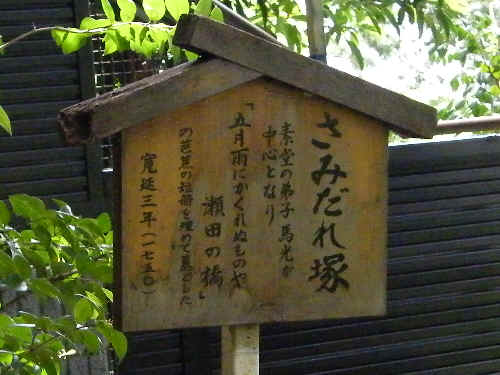 さみだれ塚
素堂の弟子 馬光が
中心となり
「五月雨にかくれぬものや
瀬田の橋」
の芭蕉の短冊を埋めて墓のした
寛延三年(一七五〇)